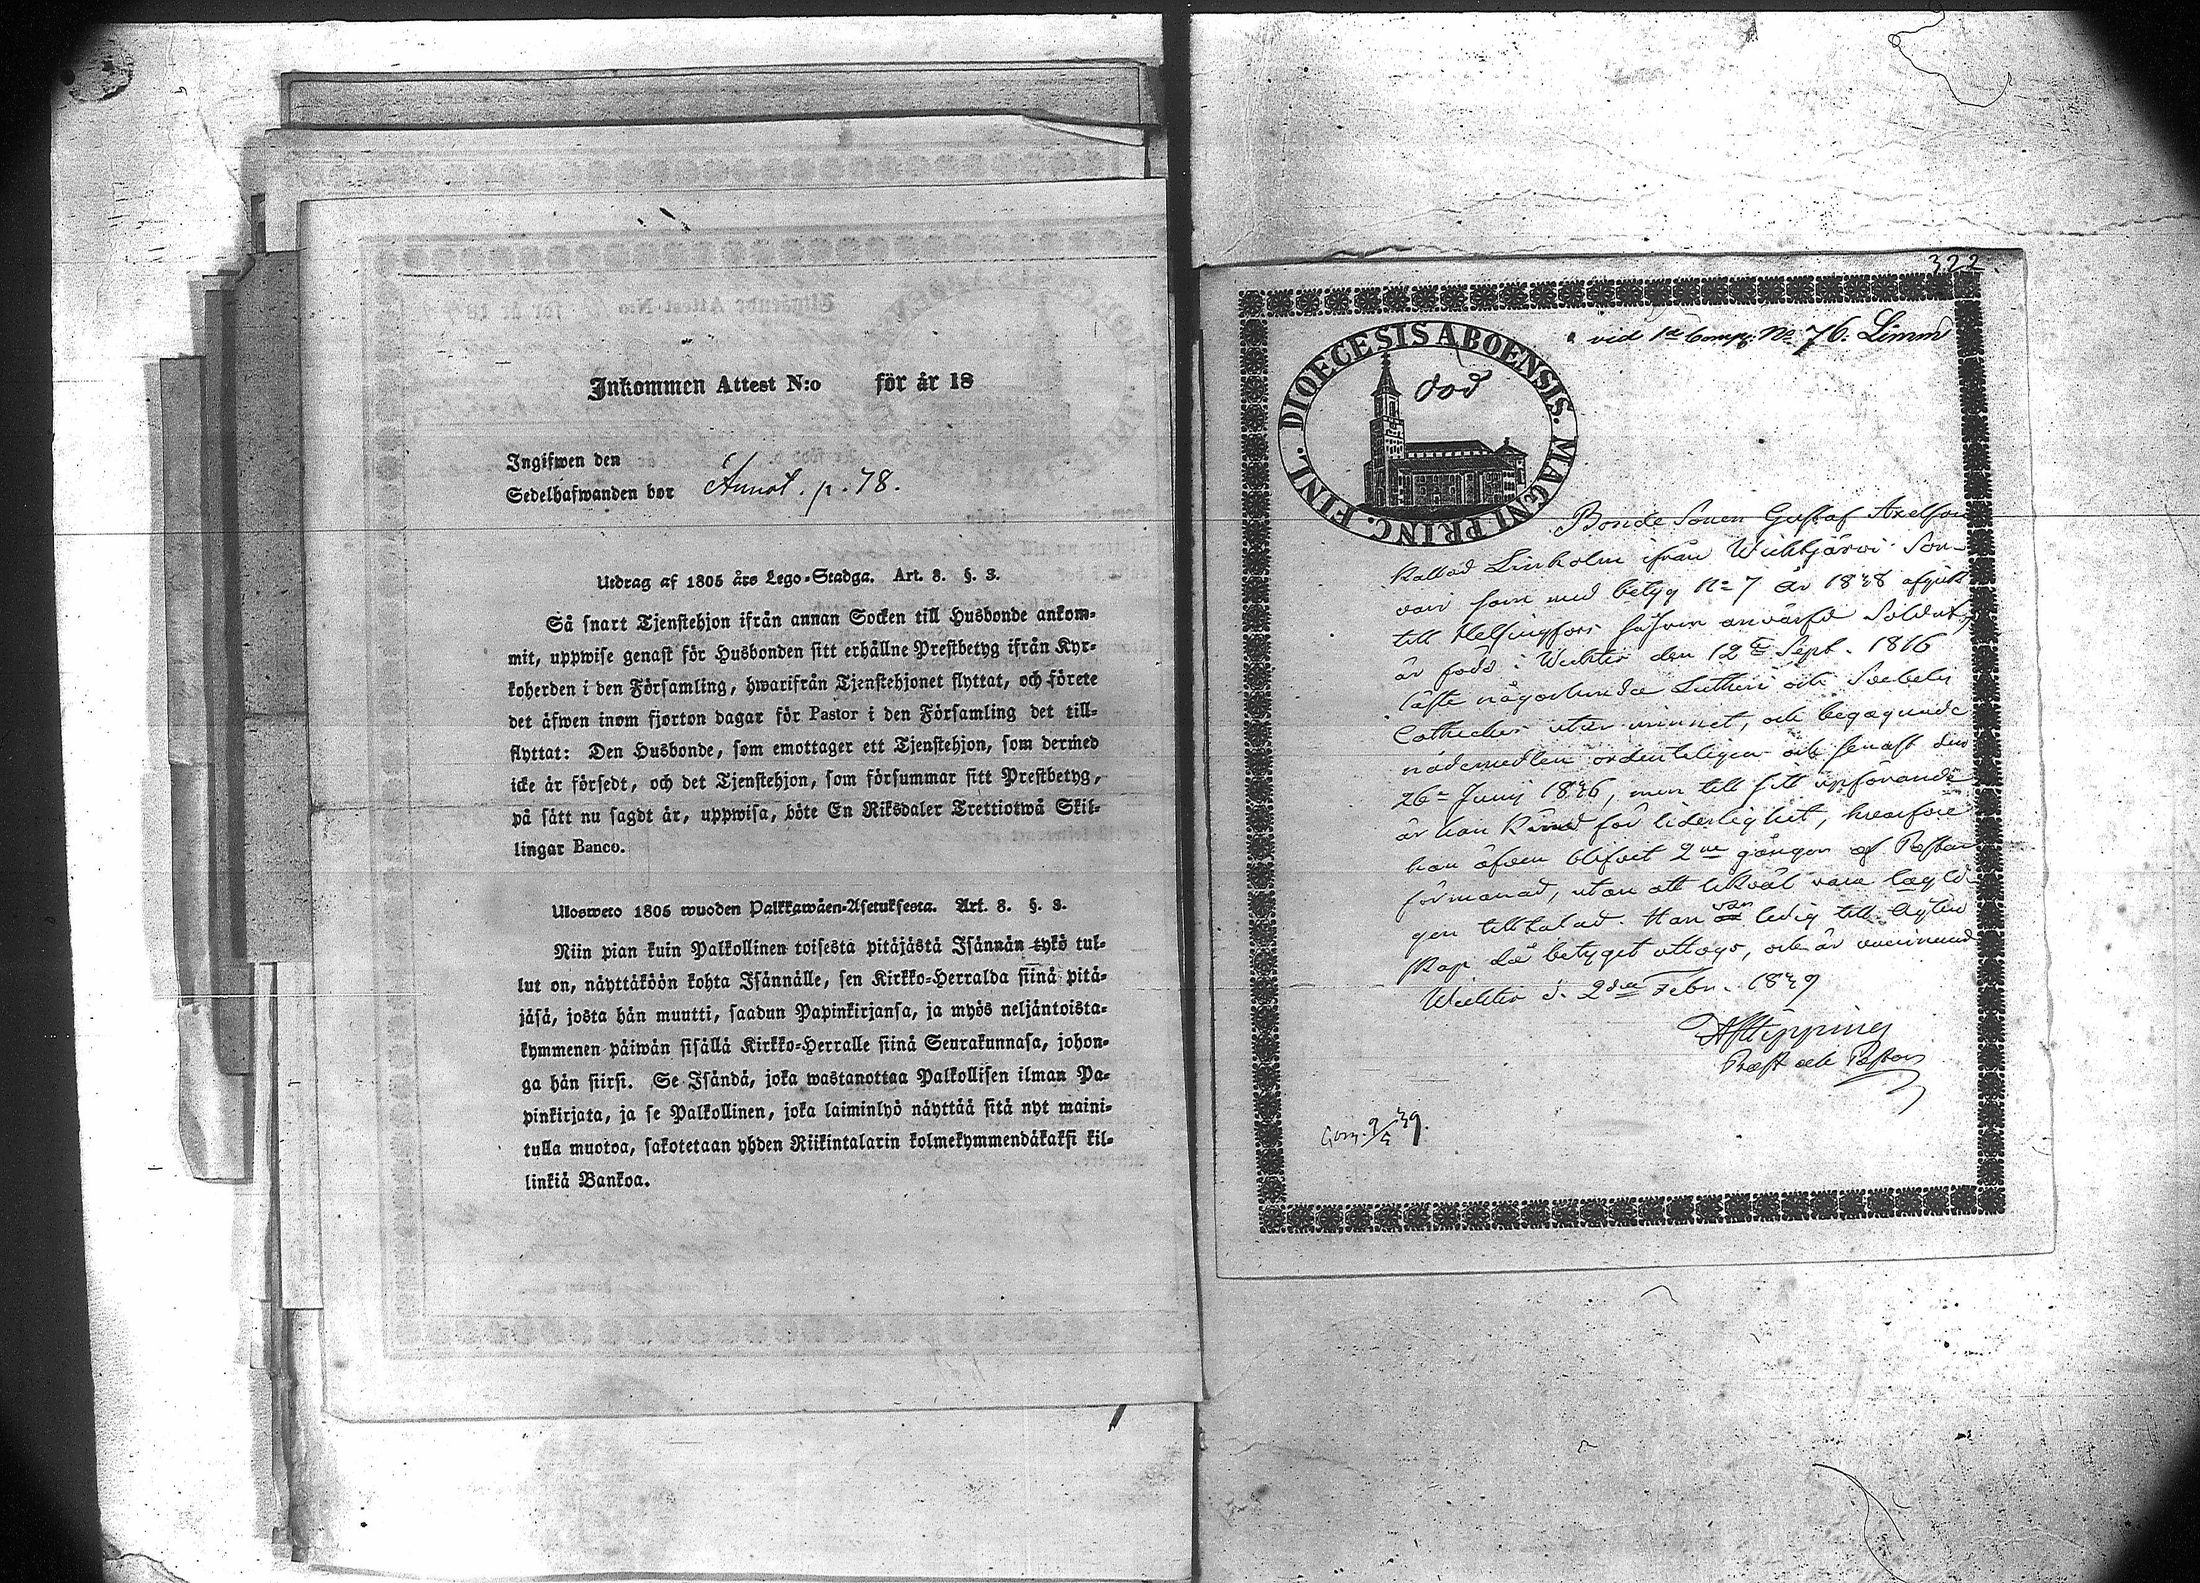 Inkommen Attest N:o för år 18
Ingifwen den
Sedelhafwanden bor Annot. p. 78.
Utdrag af 1805 års Lego-Stadga. Art. 8. §. 3.
Så snart Tjenstehjon ifrån annan Socken till Husbonde ankom-
mit, uppwise genast för Husbonden sitt erhållne Prestbetyg ifrån Kyr-
koherden i den Församling, hwarifrån Tjenstehjonet flyttat, och förete
det äfwen inom fjorton dagar för Pastor i den Församling det till-
flyttat: Den Husbonde, som emottager ett Tjenstehjon, som dermed
icke är försedt, och det Tjenstehjon, som försummar sitt Prestbetyg,
på sätt nu sagdt är, uppwisa, böte En Riksdaler Trettiotwå Skil-
lingar Banco.
Ulosweto 1805 wuoden Palkkawäen-Asetuksesta. Art. 8. §. 3.
Niin pian kuin Palkollinen toisesta pitäjästä Isännän tykö tul-
lut on, näyttäköön kohta Isännälle, sen Kirkko-Herralda siinä pitä-
jäsä, josta hän muutti, saadun Papinkirjansa, ja myös neljäntoista-
kymmenen päiwän sisällä Kirkko-Herralle siinä Seurakunnasa, johon-
ga hän siirsi. Se Isändä, joka wastanottaa Palkollisen ilman Pa-
pinkirjata, ja se Palkollinen, joka laiminlyö näyttää sitä nyt maini-
tulla muotoa, sakotetaan yhden Riikintalarin kolmekymmendäkaksi kil-
linkiä Bankoa.
322.
vid 1a Comp. No 76. Limm
DIOECESIS ABOENSIS. MAGNI PRINC. FINL.
död
Bonde Sonen Gustaf Axelson
kallad Linholm ifrån Wichtjärvi Son-
som med betyg No 7 år 1838 afgick
till Helsingfors såsom anvärfd Soldat,
är född i Wichtis den 12te Sept. 1816
läste någorlunda Lutheri och Svebelii
Catheches utur minnet, och begagnade
nådemedlen ordenteligen och senast den
26te Junij 1836, men till sitt uppförande
är han känd för liderlighet, hvarföre
han äfven blifvit 2ne gånger af Pastor
förmanad, utan att likväl vara lagli-
gen tilltalad. Han var ledig till Ägten
skap då betyget uttogs, och är vaccinerad
Wichtis d. 2dra Febr. 1839
Hipping
Præst och Pastor